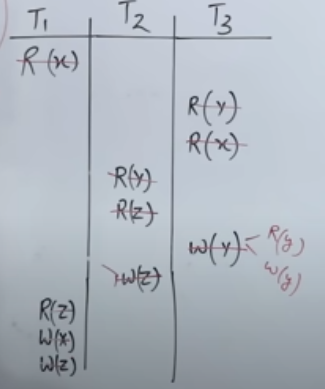 T1 T2 T3
R(x)
R(y)
R(x)
R(y)
R(z)
W(y) R(y)
W(y)
W(z)
R(z)
W(x)
W(z)